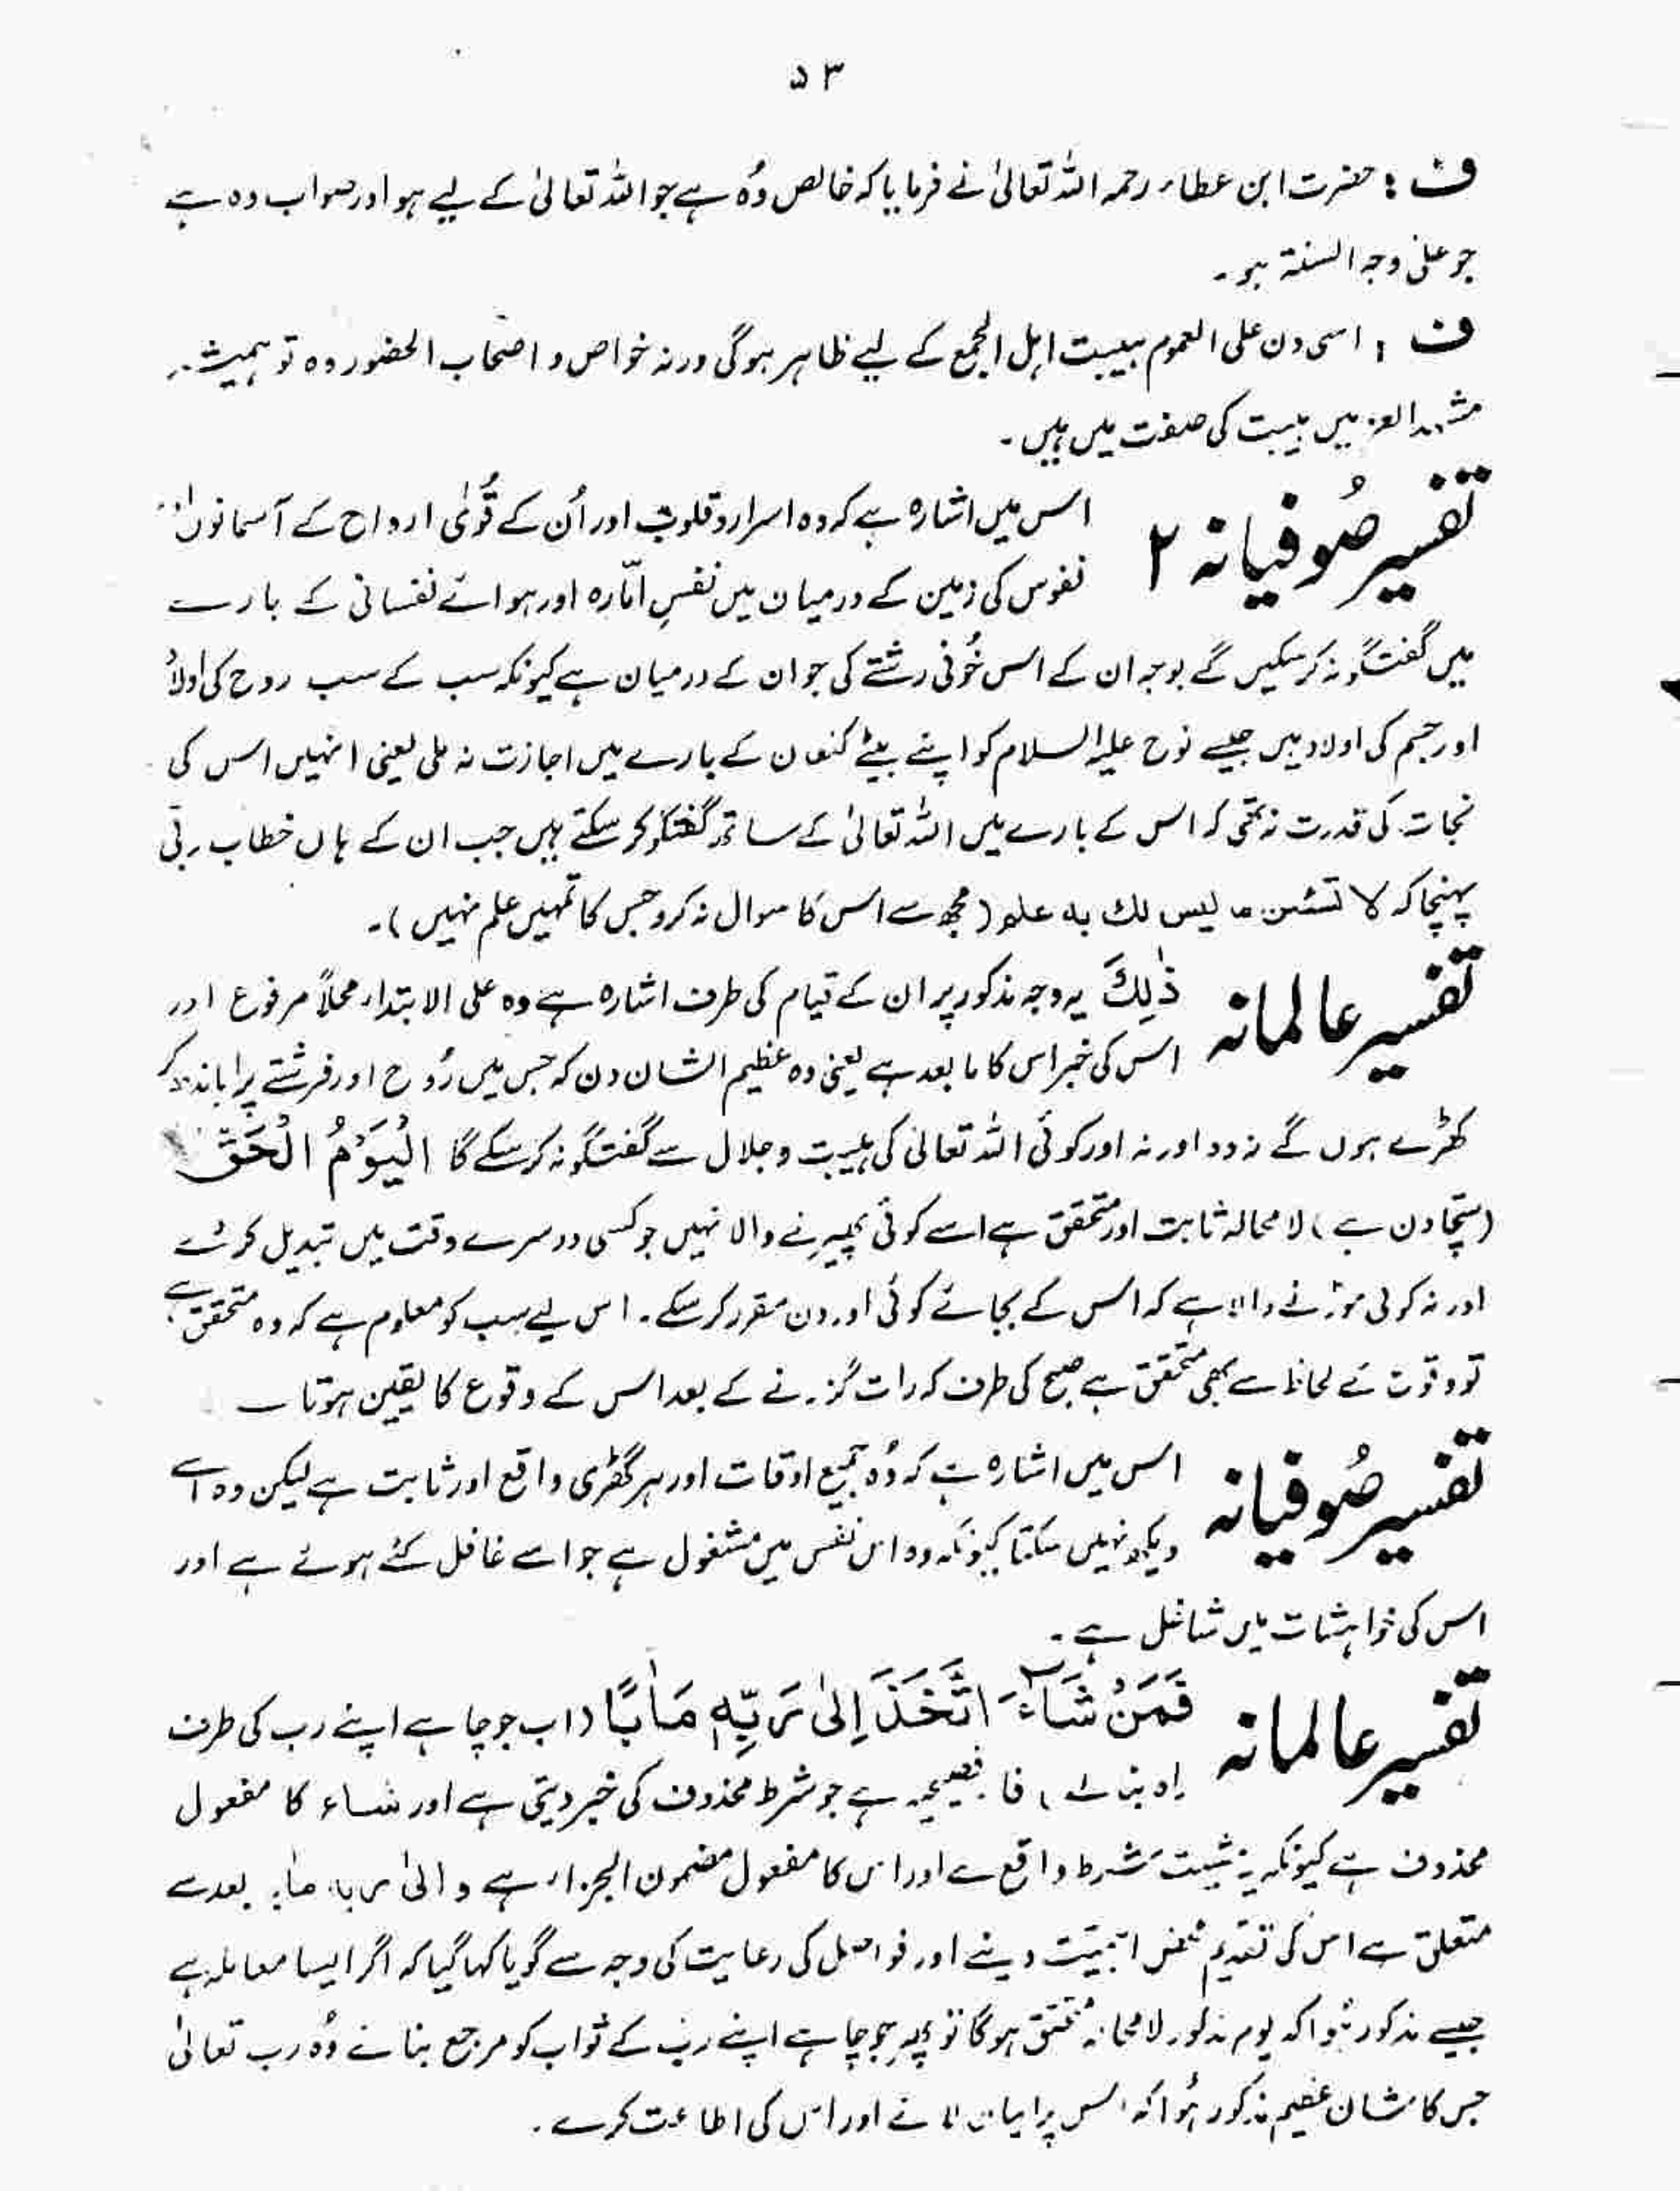 ۵۳
ف : حضرت ابن عطاء رحمہ اللہ تعالیٰ نے فرمایا کہ خالص وُہ ہے جو اللہ تعالیٰ کے لیے ہو اور صواب وہ ہے
جو علیٰ وجہ السنۃ ہو۔
ف : اسی دن علی العموم ہیبت اہل الجمع کے لیے ظاہر ہوگی ورنہ خواص و اصحاب الحضور وہ تو ہمیشہ
مشہد العز میں ہیبت کی صفت میں ہیں۔
تفسیر صُوفیانہ ۲ اس میں اشارہ ہے کہ وہ اسرار و قلوب اور اُن کے قُوٰی ارواح کے آسمانوں اور
نفوس کی زمین کے درمیان میں نفسِ امّارہ اور ہوائے نفسانی کے بارے
میں گفتگو نہ کرسکیں گے بوجہ ان کے اس خُونی رشتے کی جو ان کے درمیان ہے کیونکہ سب کے سب روح کی اولاد
اور جسم کی اولاد ہیں جیسے نوح علیہ السلام کو اپنے بیٹے کنعان کے بارے میں اجازت نہ ملی یعنی انہیں اس کی
نجات کی قدرت نہ تھی کہ اس کے بارے میں اللہ تعالیٰ کے ساتھ گفتگو کرسکتے ہیں جب ان کے ہاں خطاب ربّی
پہنچا کہ لا تسئلن ما لیس لك به علم (مجھ سے اس کا سوال نہ کرو جس کا تمہیں علم نہیں)۔
تفسیر عالمانہ ذٰلِكَ یہ وجہ مذکور پر ان کے قیام کی طرف اشارہ ہے وہ علی الابتداء محلاً مرفوع اور
اس کی خبر اس کا ما بعد ہے یعنی وہ عظیم الشان دن کہ جس میں رُوح اور فرشتے پرا باندھ کر
کھڑے ہوں گے نہ وہ اور نہ اور کوئی اللہ تعالیٰ کی ہیبت و جلال سے گفتگو نہ کرسکے گا الْیَوْمُ الْحَقُّ
(سچّا دن ہے) لا محالہ ثابت اور متحقق ہے اسے کوئی پھیرنے والا نہیں جو کسی دوسرے وقت میں تبدیل کر دے
اور نہ کوئی موڑنے والا ہے کہ اس کے بجائے کوئی اور دن مقرر کرسکے۔ اس لیے سب کو معلوم ہے کہ وہ متحقق ہے
تو وقوع کے لحاظ سے بھی متحقق ہے صبح کی طرف کہ رات گزرنے کے بعد اس کے وقوع کا یقین ہوتا
تفسیر صُوفیانہ اس میں اشارہ ہے کہ وُہ جمیع اوقات اور ہر گھڑی واقع اور ثابت ہے لیکن وہ اسے
دیکھ نہیں سکتا کیونکہ وہ اس نفس میں مشغول ہے جو اسے غافل کئے ہوئے ہے اور
اس کی خواہشات میں شاغل ہے۔
تفسیر عالمانہ فَمَنْ شَآءَ اتَّخَذَ اِلٰی رَبِّهٖ مَاٰبًا (اب جو چاہے اپنے رب کی طرف
راہ بنا لے) فا فصیحیہ ہے جو شرط محذوف کی خبر دیتی ہے اور شاء کا مفعول
محذوف ہے کیونکہ یہ مشیت شرط واقع ہے اور اس کا مفعول مضمون الجزاء ہے و الیٰ ربہ مابعد سے
متعلق ہے اس کی تقدیم محض اہمیّت دینے اور فواصل کی رعایت کی وجہ سے گویا کہا گیا کہ اگر ایسا معاملہ ہے
جیسے مذکور ہُوا کہ یوم مذکور لا محالہ متحقق ہوگا تو پھر جو چاہے اپنے رب کے ثواب کو مرجع بنائے وُہ رب تعالیٰ
جس کا شان عظیم مذکور ہُوا کہ اس پر ایمان لائے اور اس کی اطاعت کرے۔